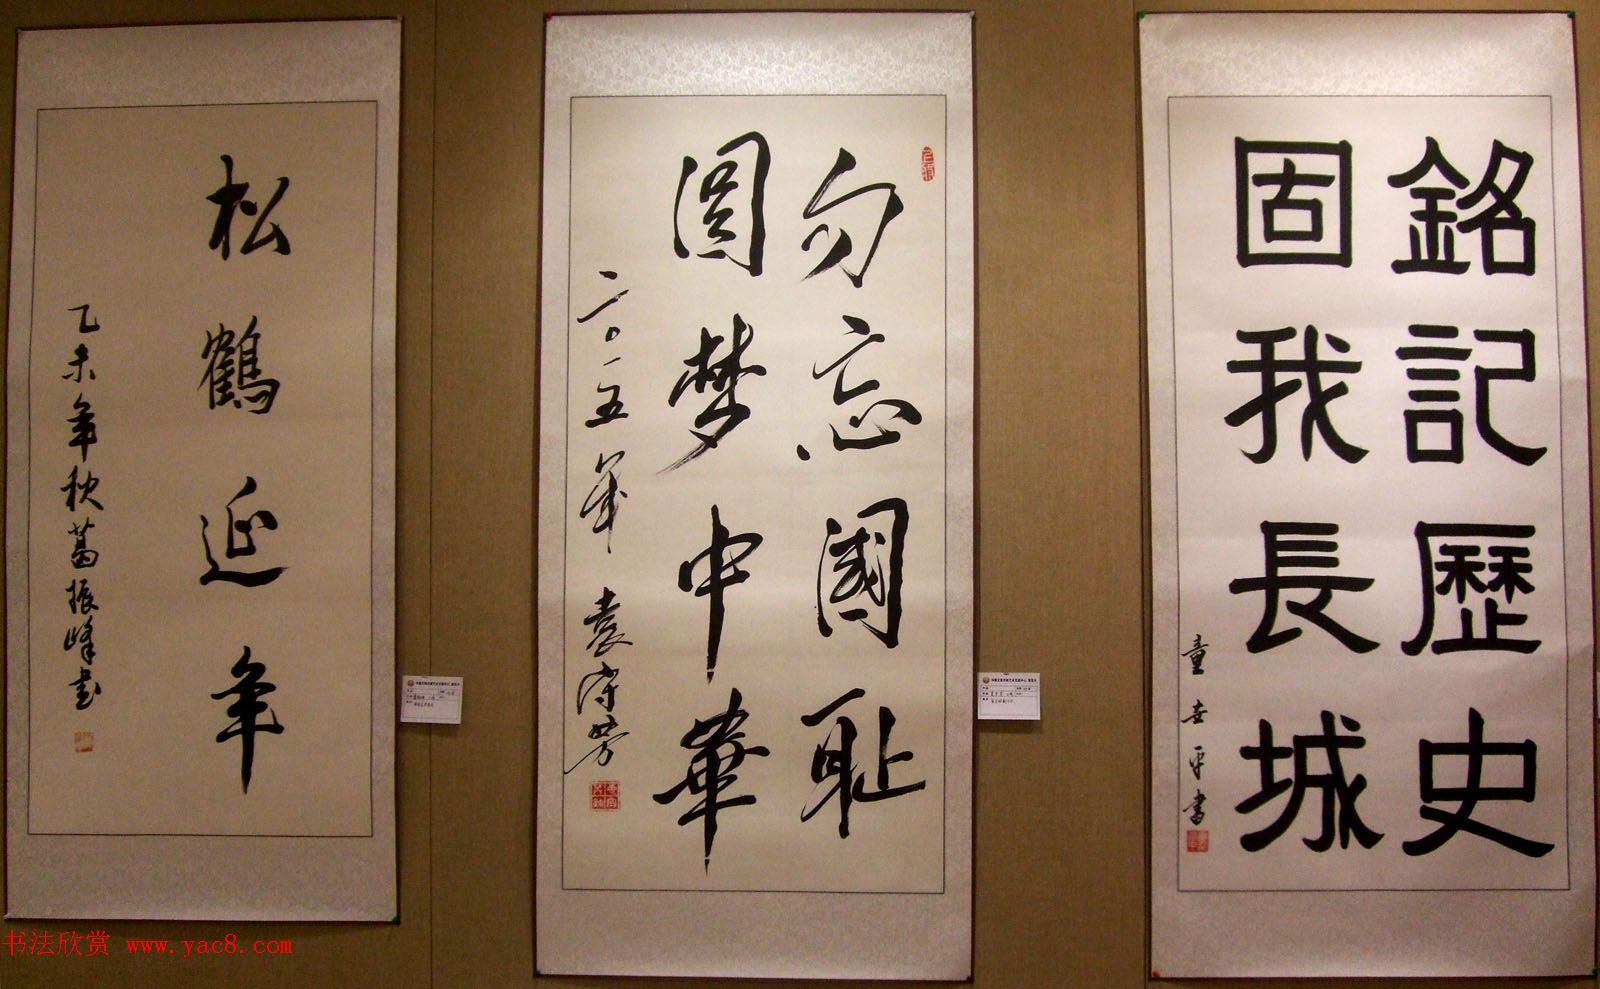 銘記歷史
固我長城
童世平書
勿忘國耻
圆梦中華
二〇一五年 袁守芳
松鶴延年
乙未年秋葛振峰书
书法欣赏 www.yac8.com